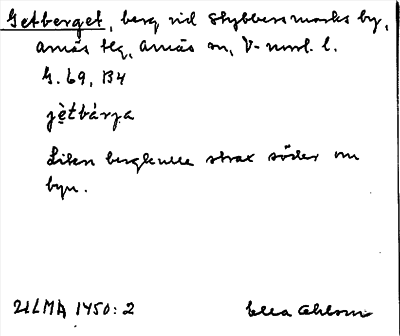 Getberget, berg vid Stybbersmarks by,
Arnäs tg, Arnäs sn, V-norrl. l.
G. 69, B4
jètbàrja
Liten bergkulle strax söder om
byn.
ULMA 1450:2 Ella Ohlson